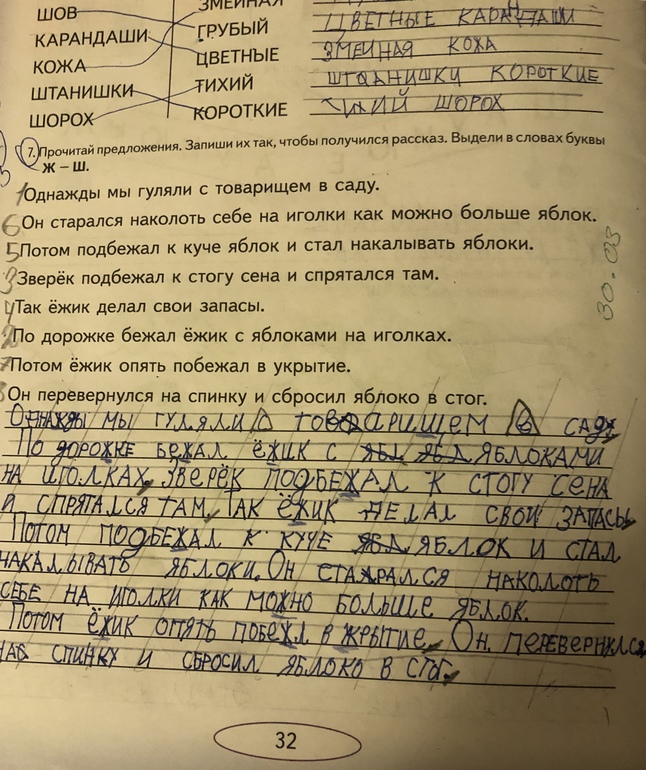 ШОВ
КАРАНДАШИ
КОЖА
ШТАНИШКИ
ШОРОХ
ЗМЕИНАЯ
ГРУБЫЙ
ЦВЕТНЫЕ
ТИХИЙ
КОРОТКИЕ
ЦВЕТНЫЕ КАРАНДАШИ
ЗМЕИНАЯ КОЖА
ШТАНИШКИ КОРОТКИЕ
ТИХИЙ ШОРОХ
7. Прочитай предложения. Запиши их так, чтобы получился рассказ. Выдели в словах буквы
Ж – Ш.
1 Однажды мы гуляли с товарищем в саду.
6 Он старался наколоть себе на иголки как можно больше яблок.
5 Потом подбежал к куче яблок и стал накалывать яблоки.
3 Зверёк подбежал к стогу сена и спрятался там.
4 Так ёжик делал свои запасы.
2 По дорожке бежал ёжик с яблоками на иголках.
7 Потом ёжик опять побежал в укрытие.
Он перевернулся на спинку и сбросил яблоко в стог.
30.03
ОДНАЖДЫ МЫ ГУЛЯЛИ ТОВАРИЩЕМ В САДУ.
ПО ДОРОЖКЕ БЕЖАЛ ЁЖИК С ЯБЛ ЯБЛ ЯБЛОКАМИ
НА ИГОЛКАХ. ЗВЕРЁК ПОДБЕЖАЛ К СТОГУ СЕНА
И СПРЯТАЛСЯ ТАМ. ТАК ЁЖИК ДЕЛАЛ СВОИ ЗАПАСЫ.
ПОТОМ ПОДБЕЖАЛ К КУЧЕ ЯБЛ ЯБЛОК И СТАЛ
НАКАЛЫВАТЬ ЯБЛОКИ. ОН СТАРАЛСЯ НАКОЛОТЬ
СЕБЕ НА ИГОЛКИ КАК МОЖНО БОЛЬШЕ ЯБЛОК.
ПОТОМ ЁЖИК ОПЯТЬ ПОБЕЖЛ В УКРЫТИЕ. ОН ПЕРЕВЕРНУЛСЯ
НА СПИНКУ И СБРОСИЛ ЯБЛОКО В СТОГ.
32